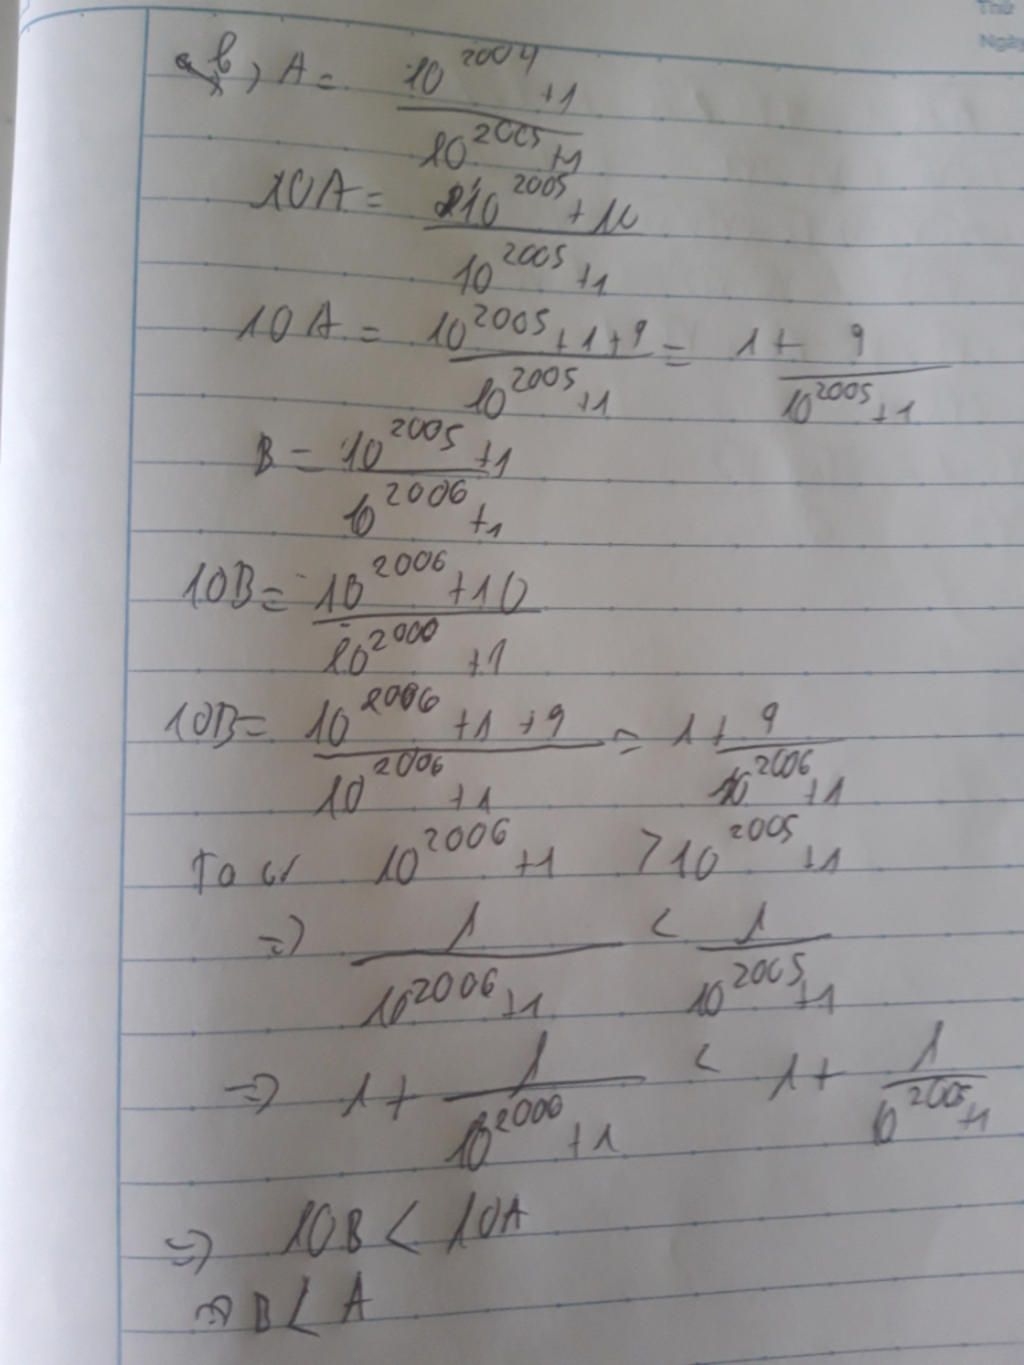 Thứ
Ngày
b, A = \frac{10^{2004}+1}{10^{2005}+1}
10A = \frac{10^{2005}+10}{10^{2005}+1}
10A = \frac{10^{2005}+1+9}{10^{2005}+1} = 1 + \frac{9}{10^{2005}+1}
B = \frac{10^{2005}+1}{10^{2006}+1}
10B = \frac{10^{2006}+10}{10^{2006}+1}
10B = \frac{10^{2006}+1+9}{10^{2006}+1} = 1 + \frac{9}{10^{2006}+1}
Ta có 10^{2006}+1 > 10^{2005}+1
=> \frac{1}{10^{2006}+1} < \frac{1}{10^{2005}+1}
=> 1 + \frac{1}{10^{2006}+1} < 1 + \frac{1}{10^{2005}+1}
=> 10B < 10A
=> B < A